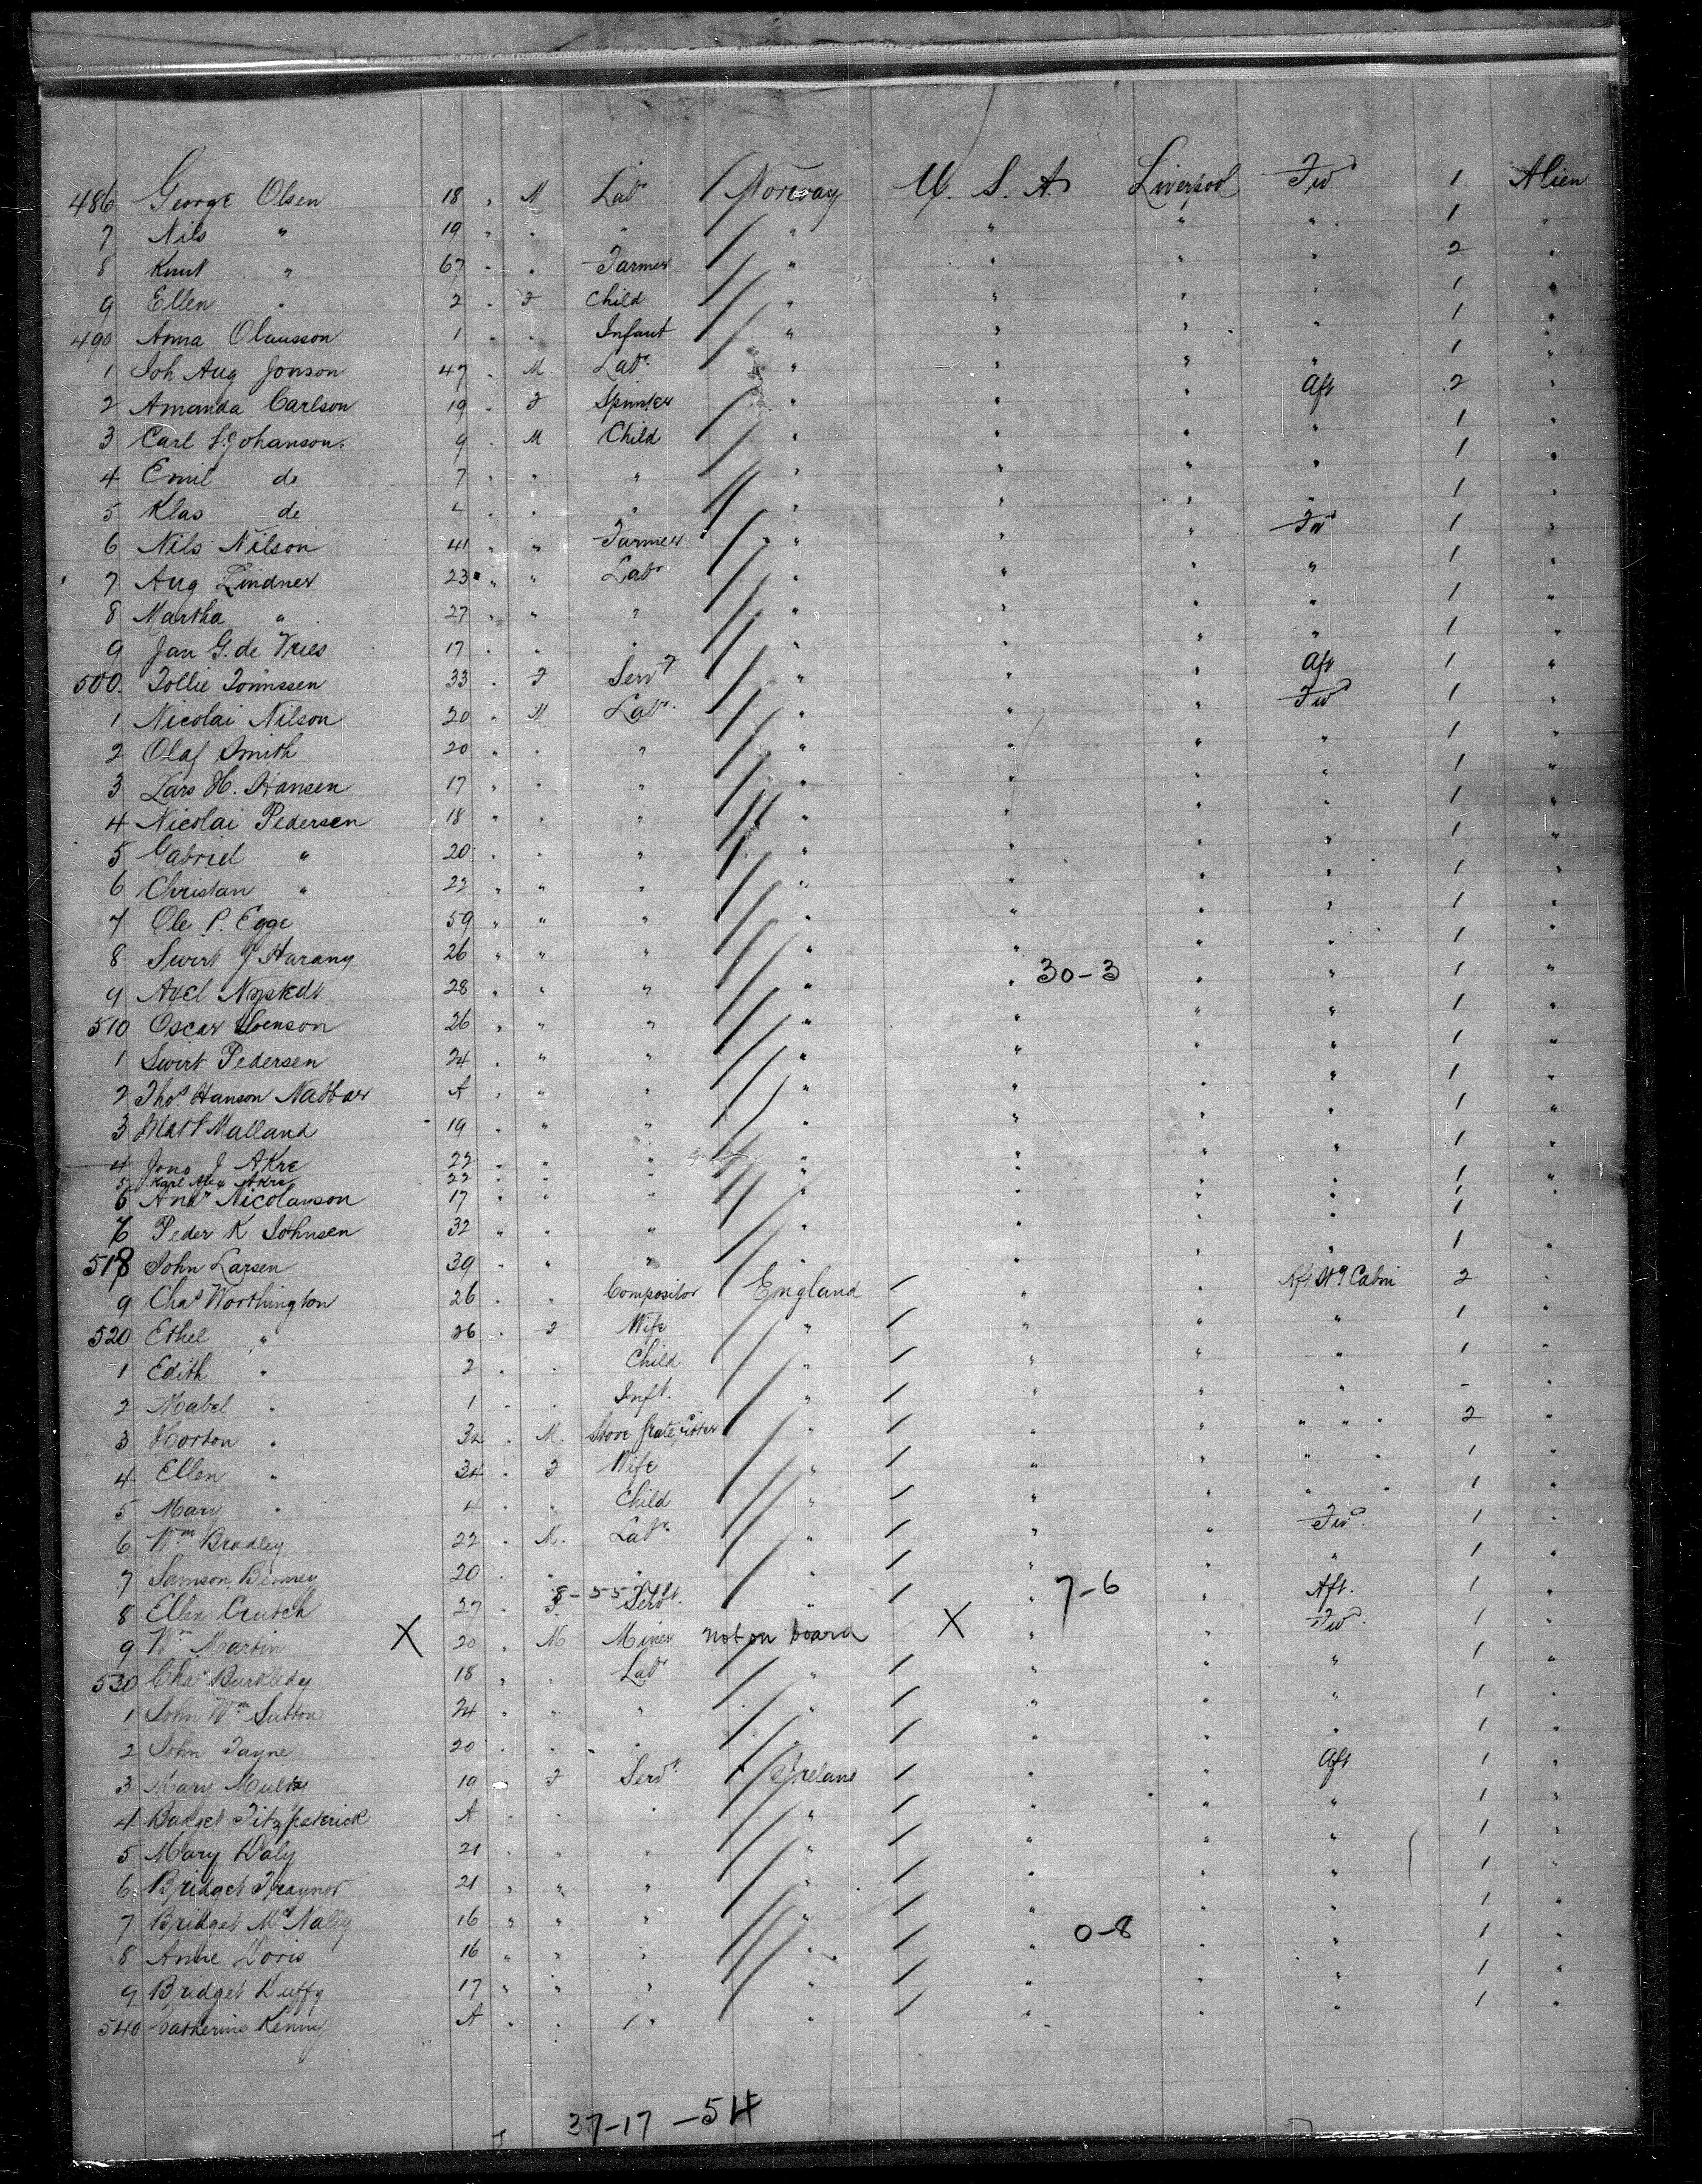 486 George Olsen 18 " M Labr Norway U. S. A. Liverpool Fwd 1 Alien
7 Nils " 19 " " " " " " " 1 "
8 Knut " 67 " " Farmer " " " " 2 "
9 Ellen " 2 " F Child " " " " 1 "
490 Anna Olausson 1 " " Infant " " " " 1 "
1 Joh Aug Jonson 47 " M. Labr " " " " 1 "
2 Amanda Carlson 19 " F Spinster " " " Aft 2 "
3 Carl S. Johanson 9 " M Child " " " " 1 "
4 Emil do 7 " " " " " " " 1 "
5 Klas do 4 " " " " " " " 1 "
6 Nils Nilson 41 " " Farmer " " " Fwd 1 "
7 Aug Lindner 23 " " Labr " " " " 1 "
8 Martha " 27 " " " " " " " 1 "
9 Jan G. de Vries 17 " " " " " " " 1 "
500. Tollie Tonnssen 33 " F Servt " " " Aft 1 "
1 Nicolai Nilson 20 " M Labr " " " Fwd 1 "
2 Olaf Smith 20 " " " " " " " 1 "
3 Lars H. Hansen 17 " " " " " " " 1 "
4 Nicolai Pedersen 18 " " " " " " " 1 "
5 Gabriel " 20 " " " " " " " 1 "
6 Christan " 22 " " " " " " " 1 "
7 Ole P. Egge 59 " " " " " " " 1 "
8 Sivert J Harang 26 " " " " " " " 1 "
9 Axel Nystedt 28 " " " " " 30-3 " " 1 "
510 Oscar Svenson 26 " " " " " " " 1 "
1 Sivirt Pedersen 24 " " " " " " " 1 "
2 Thos Hanson A " " " " " " " 1 "
3 Matt Malland 19 " " " " " " " 1 "
4 J AKre 22 " " " " " " " 1 "
5 Karl Alex Akre 22 " " " " " " " 1 "
6 Andr Nicolauson 17 " " " " " " " 1 "
7 Peder K Johnsen 32 " " " " " " " 1 "
518 John Larsen 39 " " " " " " " 1 "
9 Chas Worthington 26 " " Compositor England " " Aft Cabin 2 "
520 Ethel " 26 " F Wife " " " " 1 "
1 Edith " 2 " " Child " " " " 1 "
2 Mabel " 1 " " Inft. " " " " - "
3 Horton " 32 " M. Stove Grate Fitter " " " " " " 2 "
4 Ellen " 34 " F Wife " " " " " 1 "
5 Mary " 4 " " Child " " " " " 1 "
6 Wm Bradley 22 " M. Labr " " " Fwd. 1 "
7 Samson Binney 20 " " " " " " " 1 "
8 Ellen Crutch 27 " F. Servt. " " 7-6 " Aft. 1 "
9 Wm Martin X 20 " M Miner not on board X " " Fwd. 1 "
530 Chas Burkledy 18 " " Labr " " " " 1 "
1 John Wm Sutton 24 " " " " " " " 1 "
2 John Jayne 20 " " " " " " " 1 "
3 Mary 19 " F Servt Ireland " " Aft 1 "
4 Bridget Fitzpaterick A " " " " " " " 1 "
5 Mary Daly 21 " " " " " " " 1 "
6 Bridget Traynor 21 " " " " " " " 1 "
7 Bridget McNally 16 " " " " " " " 1 "
8 Annie Doris 16 " " " " " 0-8 " " 1 "
9 Bridget Duffy 17 " " " " " " " 1 "
540 Catherine Kenny A " " " " " " " 1 "
37-17-54